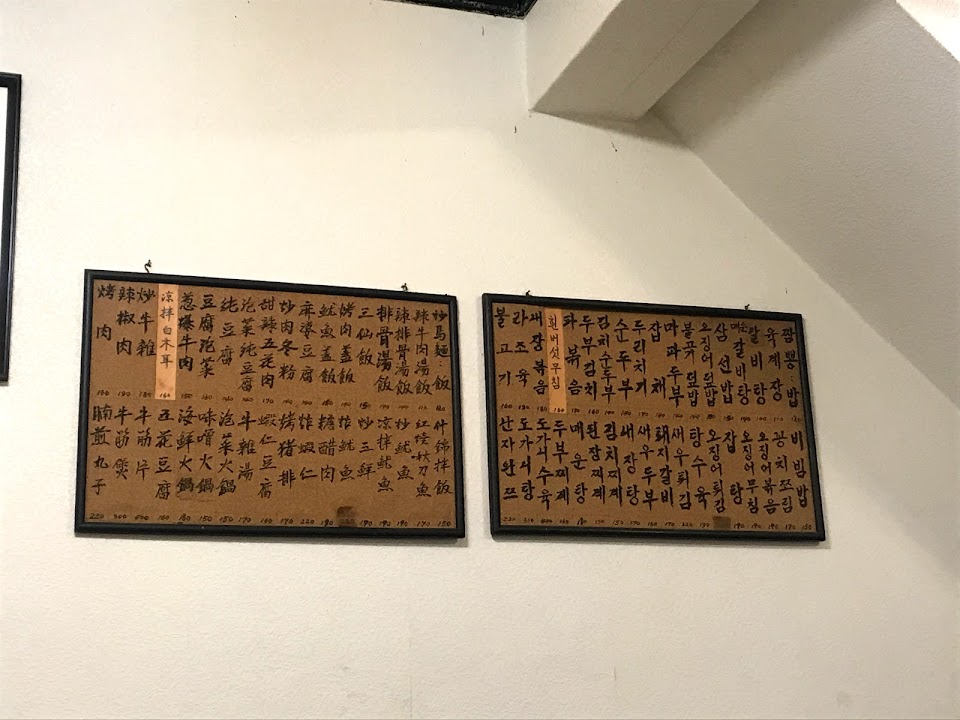 炒馬麵:飯
辣牛肉湯飯
辣排骨湯飯
排骨湯飯
三仙飯
烤肉蓋飯
魷魚蓋飯
麻婆豆腐
炒肉冬粉
甜辣五花肉
泡菜純豆腐
純豆腐
豆腐泡菜
蔥爆牛肉
涼拌白木耳
炒牛雜
辣椒肉
烤肉
什錦拌飯 150
紅燒秋刀魚 170
炒魷魚 190
涼拌魷魚 190
炒三鮮 190
炸魷魚
糖醋肉 190
炸蝦仁 220
烤豬排 170
蝦仁豆腐 160
牛雜湯 170
泡菜火鍋 150
味噌火鍋 150
海鮮火鍋 180
五花豆腐 160
牛筋片
牛筋煲
腩煎丸子 220
짬뽕:밥
육계장
갈비탕
매운갈비탕
삼선밥
오징어덮밥
불고기덮밥
마파두부
잡채
두리치기
순두부
김치순두부
두부김치
파볶음
흰버섯무침
새장볶음
라조육
불고기
비빔밥
꽁치쪼림
오징어볶음
오징어무침
잡탕
오징어튀김
탕수육
새우튀김
돼지갈비
새우두부
내장탕
김치찌께
된장찌께
매운탕
두부찌께
도가니수육
도가니
난자완쯔